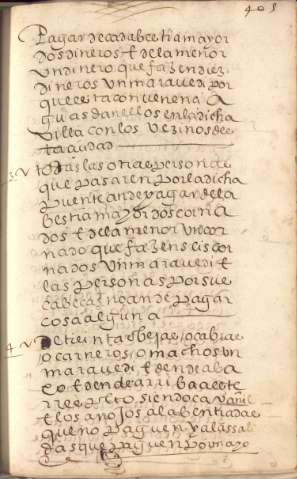 401
Pagar de cada bestia mayor
dos dineros E de la menor
un dinero que fazen diez
dineros un maravedi por
que esta convenençia
guardan ellos en la dicha
villa con los vezinos des
ta çiudad
3 V todas las otras personas
que pasaren por la dicha
puente an de pagar de la
bestia mayor dos corna
dos E de la menor un cor
nado que fazen seis cor
nados un maravedi E
las personas por sus
cabeças no an de pagar
cosa alguna
4 V De treinta obejas o cabras
o carneros o machos un
maravedi E dende aba
xo E dende arriba a este
respeto siendo
E los añojos
que no paguen
das que paguen